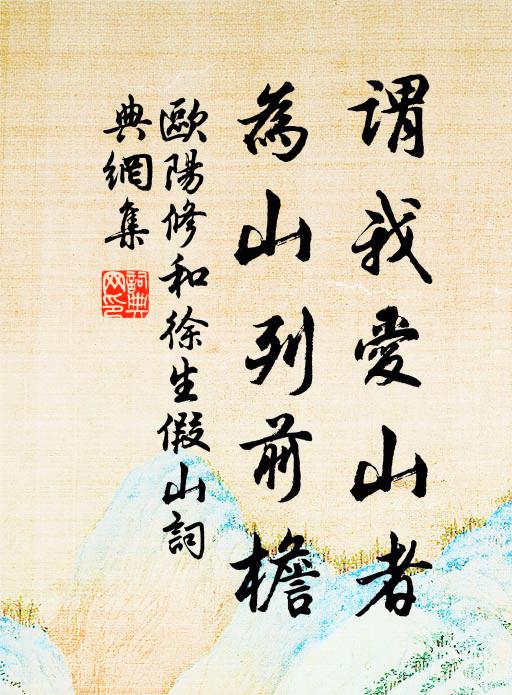 謂我愛山者
為山列前檐
歐陽修和徐生假山詞
典網集
詞典網印